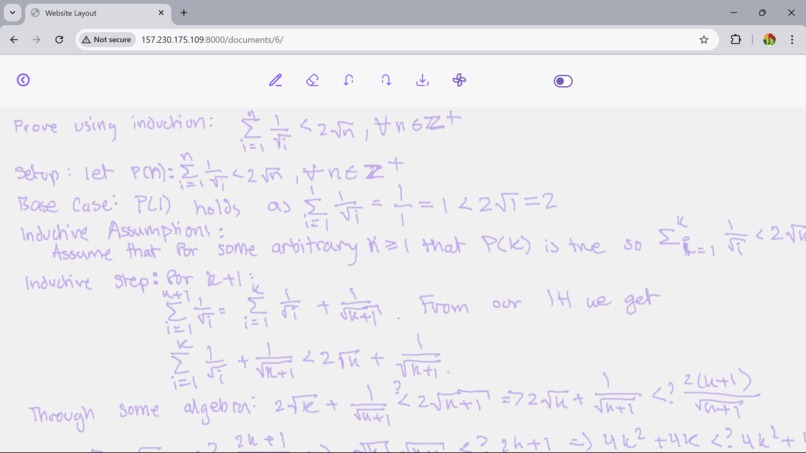 Website Layout
Not secure 157.230.175.109:8000/documents/6/
Prove using induction: n Σ i=1 1/√i < 2√n, ∀ n ∈ ℤ+
Setup: let P(n): n Σ i=1 1/√i < 2√n, ∀ n ∈ ℤ+
Base Case: P(1) holds as 1 Σ i=1 1/√i = 1/1 = 1 < 2√1 = 2
Inductive Assumptions:
Assume that for some arbitrary k ≥ 1 that P(k) is true so Σ k i=1 1/√i < 2√k
Inductive step: for k+1:
k+1 Σ i=1 1/√i = k Σ i=1 1/√i + 1/√k+1 . From our IH we get
k Σ i=1 1/√i + 1/√k+1 < 2√k + 1/√k+1 .
Through some algebra: 2√k + 1/√k+1 <? 2√k+1 => 2√k + 1/√k+1 <? 2(k+1)/√k+1
<? 2k+1 => 4k² + 4k <? 4k² + 4